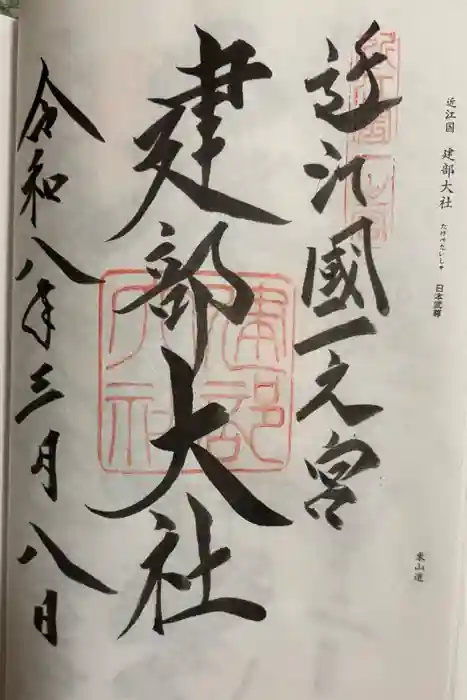 近江国 建部大社 たけべたいしゃ 日本武尊
東山道
近江國一之宮
建部大社
令和八年三月八日
近江国一之宮
建部大社